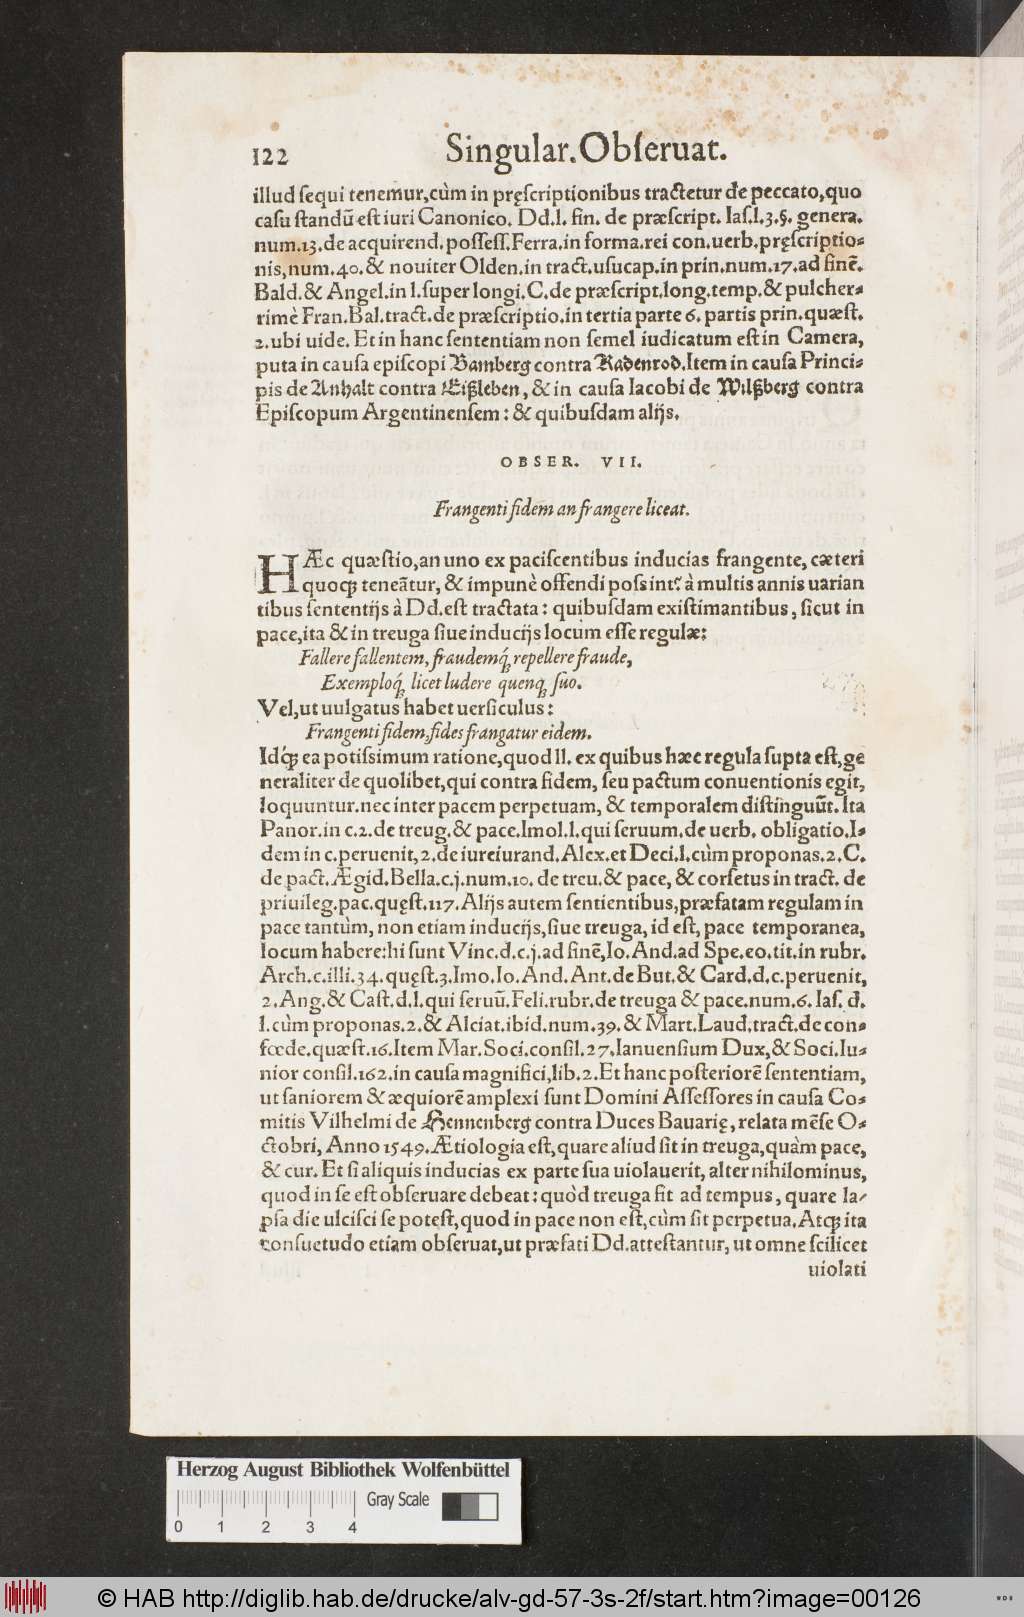 122 Singular. Obſeruat.
illud ſequi tenemur, cùm in pręſcriptionibus tractetur de peccato, quo
caſu ſtandũ eſt iuri Canonico. Dd. l. fin. de præſcript. Iaſ. l. 3. §. genera.
num. 13. de acquirend. poſſeſſ. Ferra. in forma. rei con. uerb. pręſcriptio-
nis, num. 40. & nouiter Olden. in tract. uſucap. in prin. num. 17. ad finẽ.
Bald. & Angel. in l. ſuper longi. C. de præſcript. long. temp. & pulcher-
rimè Fran. Bal. tract. de præſcriptio. in tertia parte 6. partis prin. quæſt.
2. ubi uide. Et in hanc ſententiam non ſemel iudicatum eſt in Camera,
puta in cauſa epiſcopi Bamberg contra Radenrod. Item in cauſa Princi-
pis de Anhalt contra Eißleben, & in cauſa Iacobi de Wilßberg contra
Epiſcopum Argentinenſem: & quibuſdam alijs.
OBSER. VII.
Frangenti fidem an frangere liceat.
HÆc quæſtio, an uno ex paciſcentibus inducias frangente, cæteri
quoq; teneãtur, & impunè offendi poſsint? à multis annis uarian
tibus ſententijs à Dd. eſt tractata: quibuſdam exiſtimantibus, ſicut in
pace, ita & in treuga ſiue inducijs locum eſſe regulæ:
Fallere fallentem, fraudemq́; repellere fraude,
Exemploq́; licet ludere quenq; ſuo.
Vel, ut uulgatus habet uerſiculus:
Frangenti fidem, fides frangatur eidem.
Idq́; ea potiſsimum ratione, quod ll. ex quibus hæc regula ſupta eſt, ge
neraliter de quolibet, qui contra fidem, ſeu pactum conuentionis egit,
loquuntur. nec inter pacem perpetuam, & temporalem diſtinguũt. Ita
Panor. in c. 2. de treug. & pace. Imol. l. qui ſeruum. de uerb. obligatio. I-
dem in c. peruenit, 2. de iureiurand. Alex. et Deci. l. cùm proponas. 2. C.
de pact. Ægid. Bella. c. j. num. 10. de treu. & pace, & corſetus in tract. de
priuileg. pac. quęſt. 117. Alijs autem ſentientibus, præfatam regulam in
pace tantùm, non etiam inducijs, ſiue treuga, id eſt, pace temporanea,
locum habere: hi ſunt Vinc. d. c. j. ad finẽ, Io. And. ad Spe. eo. tit. in rubr.
Arch. c. illi. 34. quęſt. 3. Imo. Io. And. Ant. de But. & Card. d. c. peruenit,
2. Ang. & Caſt. d. l. qui ſeruũ. Feli. rubr. de treuga & pace. num. 6. Iaſ. d.
l. cùm proponas. 2. & Alciat. ibid. num. 39. & Mart. Laud. tract. de con-
fœde. quæſt. 16. Item Mar. Soci. conſil. 27. Ianuenſium Dux, & Soci. Iu-
nior conſil. 162. in cauſa magnifici, lib. 2. Et hanc poſteriorẽ ſententiam,
ut ſaniorem & æquiorẽ amplexi ſunt Domini Aſſeſſores in cauſa Co-
mitis Vilhelmi de Hennenberg contra Duces Bauarię, relata mẽſe O-
ctobri, Anno 1549. Ætiologia eſt, quare aliud ſit in treuga, quàm pace,
& cur. Et ſi aliquis inducias ex parte ſua uiolauerit, alter nihilominus,
quod in ſe eſt obſeruare debeat: quòd treuga ſit ad tempus, quare la-
pſa die ulciſci ſe poteſt, quod in pace non eſt, cùm ſit perpetua. Atq; ita
conſuetudo etiam obſeruat, ut præfati Dd. atteſtantur, ut omne ſcilicet
uiolati
Herzog August Bibliothek Wolfenbüttel
Gray Scale
0 1 2 3 4
© HAB http://diglib.hab.de/drucke/alv-gd-57-3s-2f/start.htm?image=00126